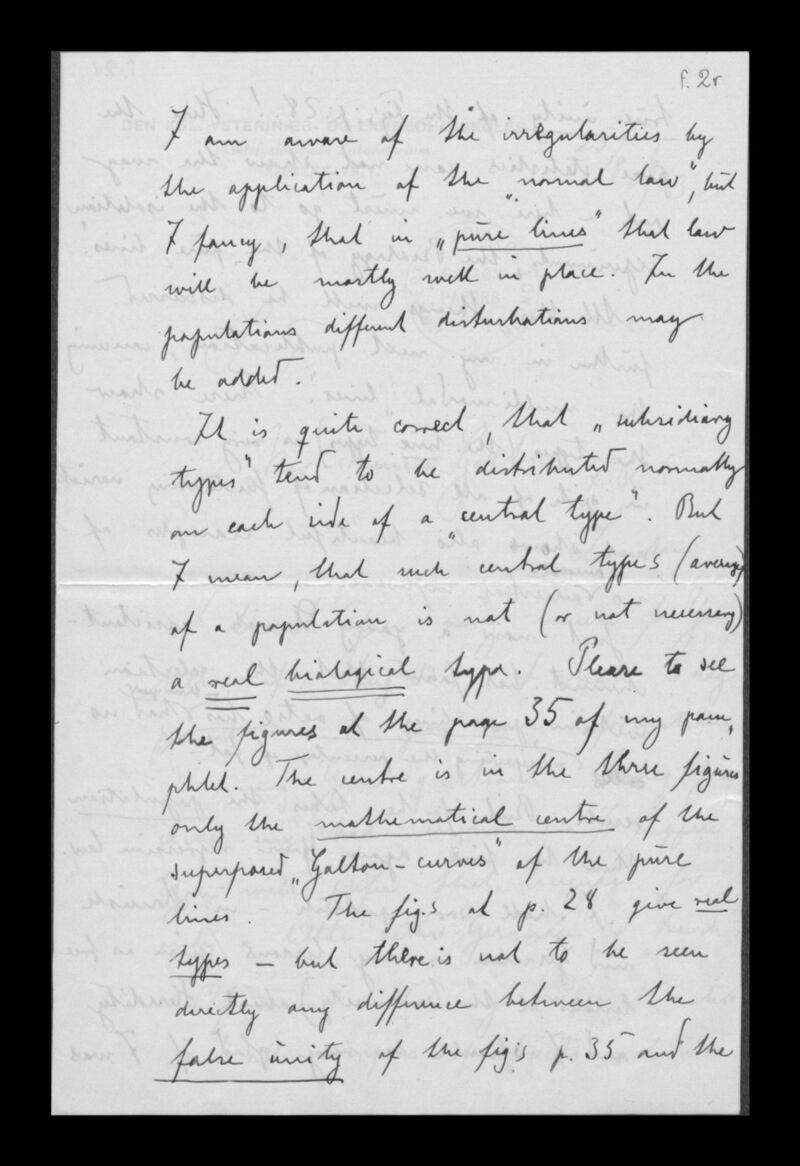 f. 2r
I am aware of the irregularities by
the application of the „normal law", but
I fancy, that in „pure lines" that law
will be mostly well in place. In the
populations different disturbations may
be added.
It is quite correct, that „subsidiary
types" tend to be distributed normally
on each side of a „central type". But
I mean, that such central types (average)
of a population is not (or not necessary)
a real biological type. Please to see
the figures at the page 35 of my pam,
phlet. The centre is in the three figures
only the mathematical centre of the
superposed „Galton-curves" of the pure
lines. The fig.s at p. 28 give real
types – but there is not to be seen
directly any difference between the
false unity of the fig's p. 35 and the